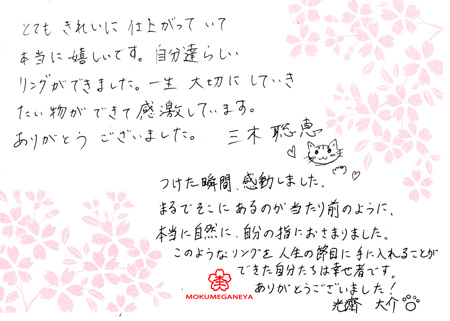 とても きれいに 仕上がって いて
本当に 嬉しいです。自分達らしい
リングができました。一生 大切に していき
たい物が できて 感激しています。
ありがとう ございました。
三木 聡恵
つけた瞬間、感動しました。
まるでそこに あるのが 当たり前のように、
本当に自然に、自分の指におさまりました。
このようなリングを 人生の節目に 手に入れることが
できた自分たちは 幸せ者です。
ありがとうございました！
光齋 大介
MOKUMEGANEYA